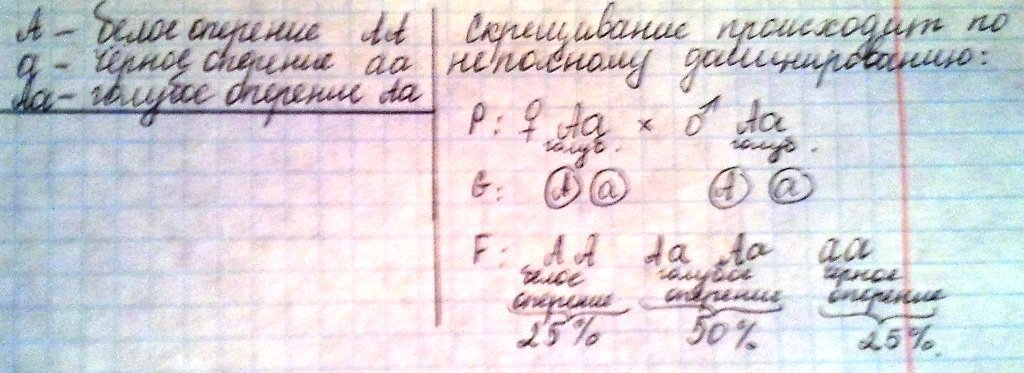 А – белое оперение АА
а – чёрное оперение аа
Аа – голубое оперение Аа
Скрещивание происходит по
неполному доминированию:
Р: ♀ Аа × ♂ Аа
голуб. голуб.
G: А а А а
F: АА Аа Аа аа
белое голубое чёрное
оперение оперение оперение
25% 50% 25%.